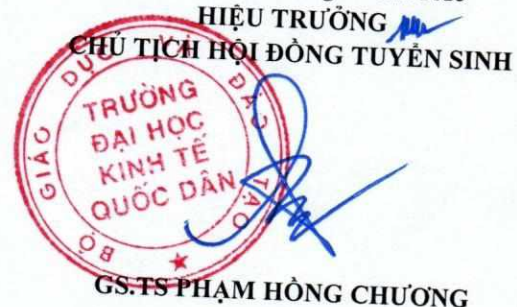 HIỆU TRƯỞNG
CHỦ TỊCH HỘI ĐỒNG TUYỂN SINH
BỘ GIÁO DỤC VÀ ĐÀO TẠO
TRƯỜNG
ĐẠI HỌC
KINH TẾ
QUỐC DÂN
GS.TS PHẠM HỒNG CHƯƠNG